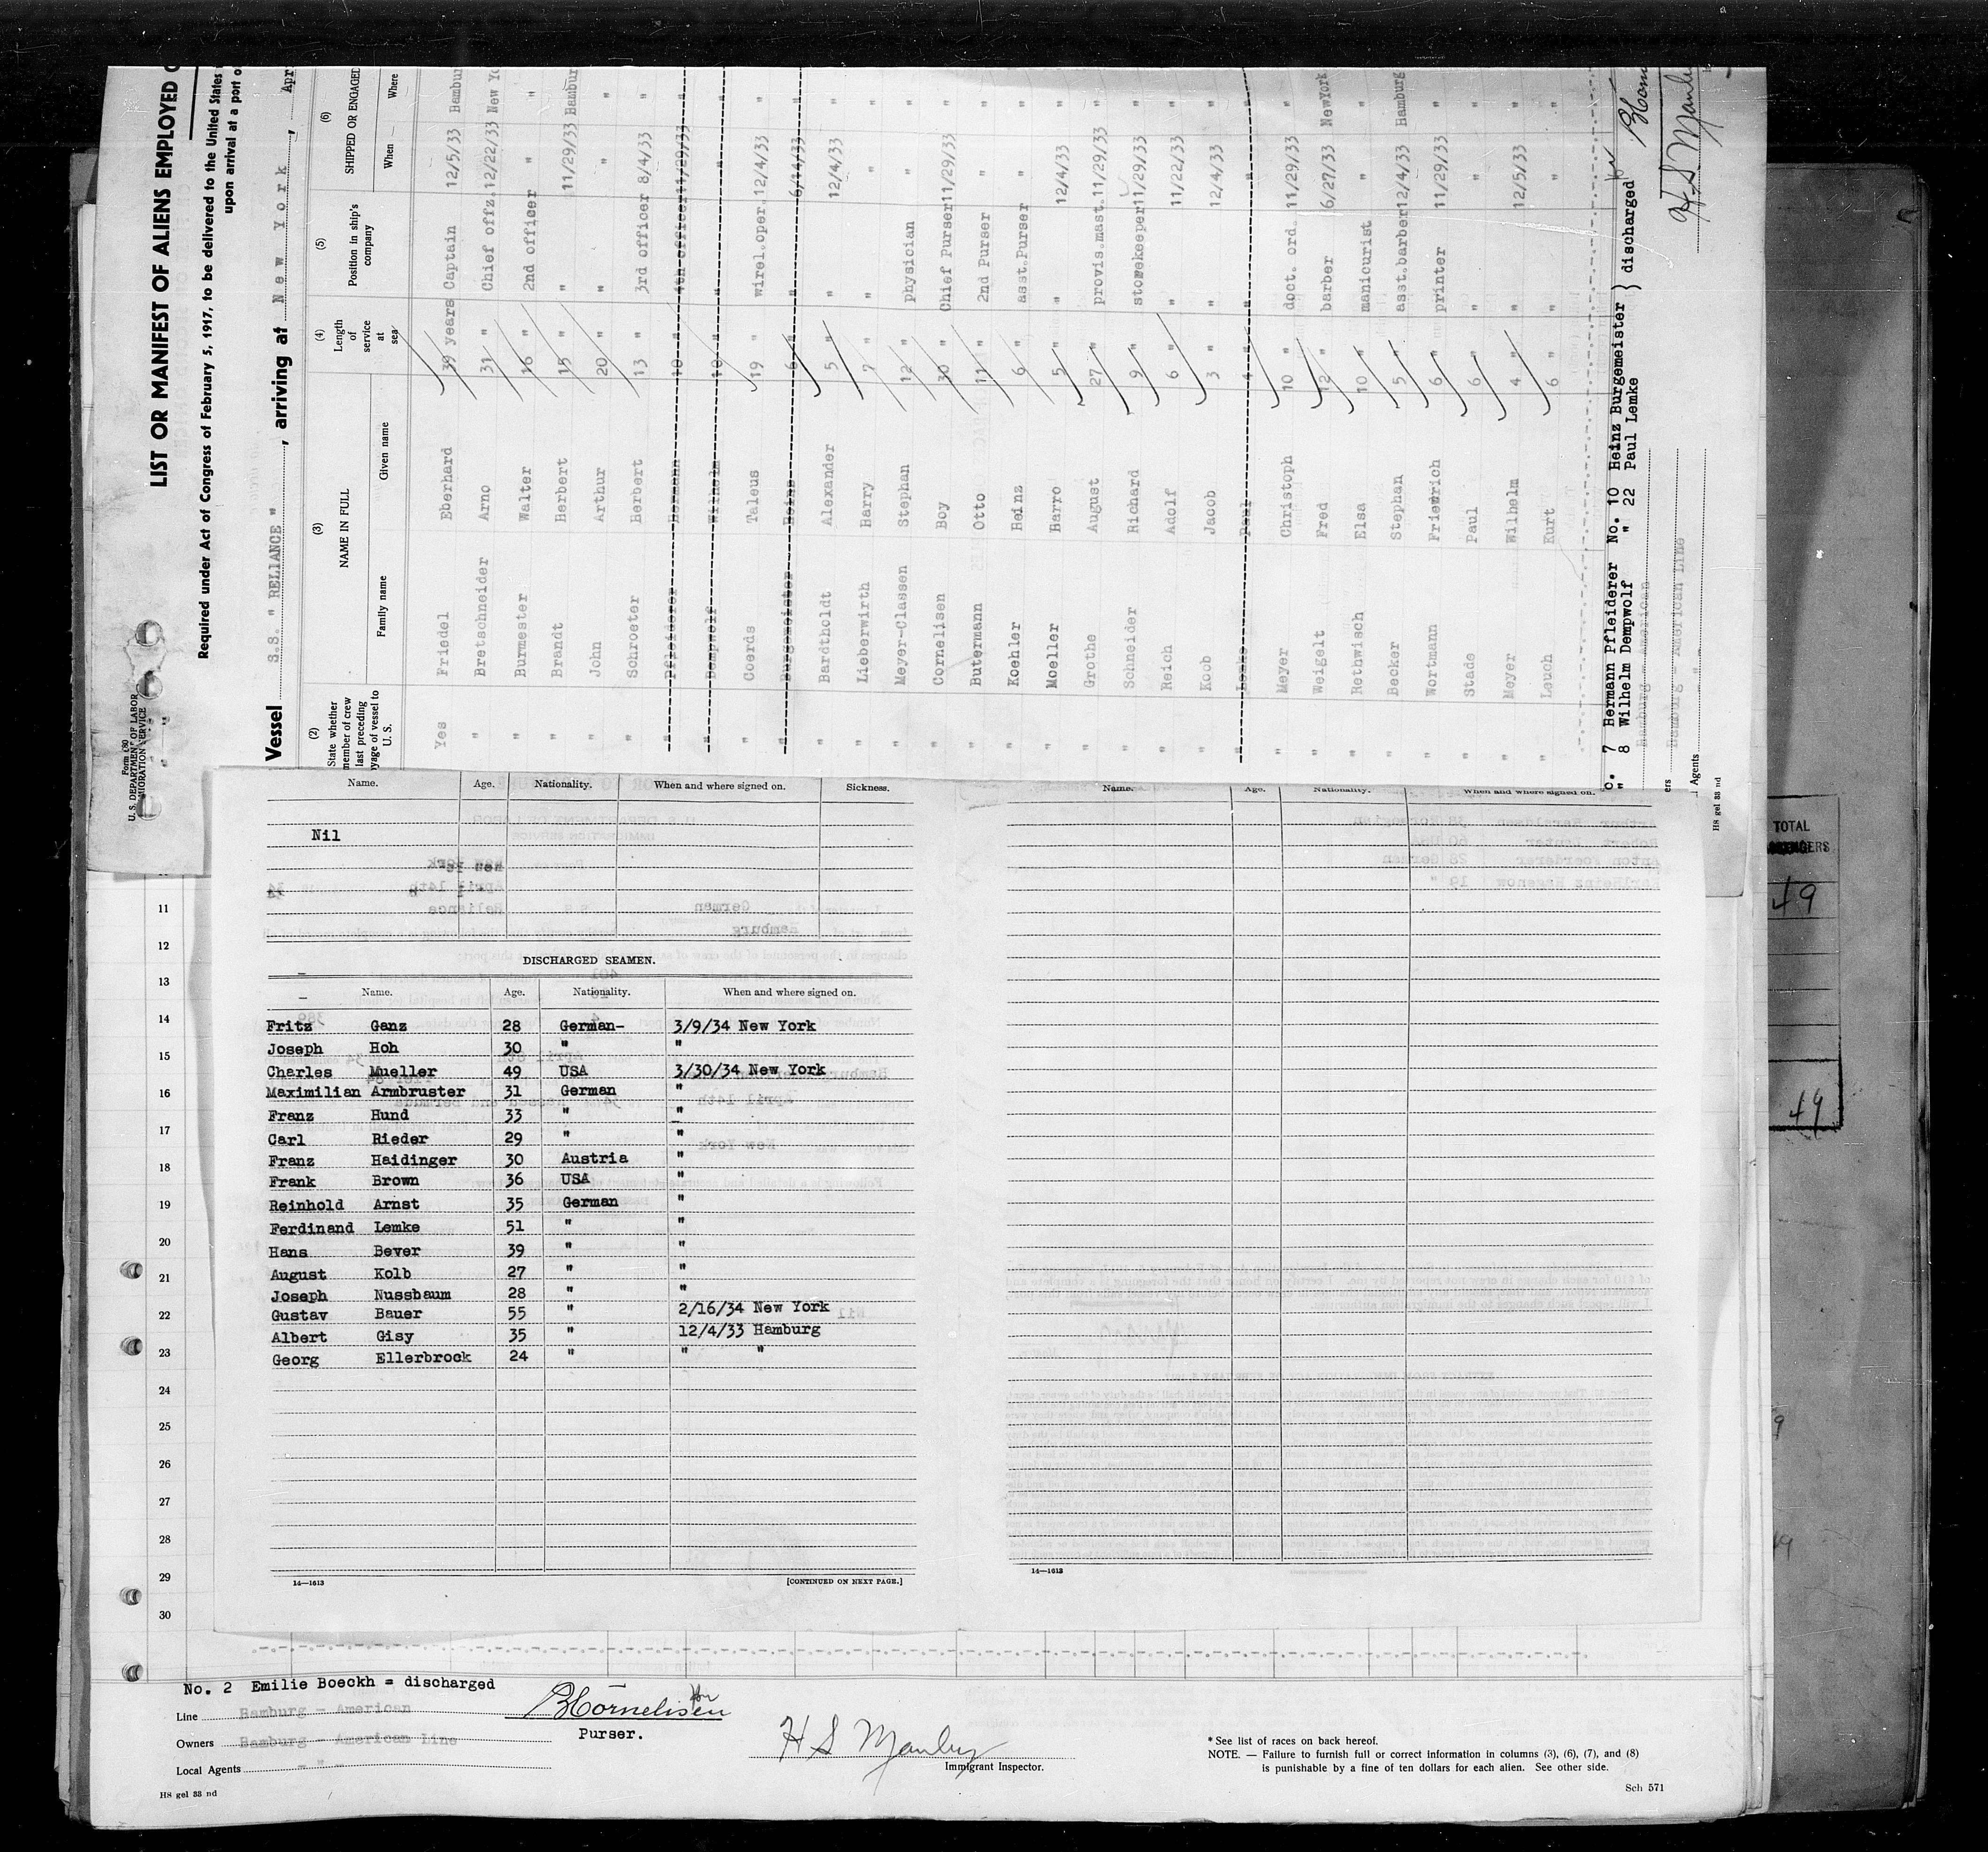 LIST OR MANIFEST OF ALIENS EMPLOYED
Required under Act of Congress of February 5, 1917, to be delivered to the United States
upon arrival at a port
Form 680
U. S. DEPARTMENT OF LABOR
Vessel S.S. " RELIANCE " , arriving at New York , Apr
(2) (3) (4) (5) (6)
State whether member of crew last preceding voyage of vessel to U. S.
NAME IN FULL
Family name Given name
Length of service at sea
Position in ship's company
SHIPPED OR ENGAGED
When Where
Yes Friedel Eberhard 39 years Captain 12/5/33 Hambur
" Bretschneider Arno 31 " Chief offz. 12/22/33 New Yo
" Burmester Walter 16 " 2nd officer " "
" Brandt Herbert 15 " " 11/29/33 Hambur
" John Arthur 20 " " " "
" Schroeter Herbert 13 " 3rd officer 8/4/33 "
" Pfleiderer Hermann 10 " 4th officer 11/29/33 "
" Dempwolf Wilhelm 10 " " " "
" Coerds Taleus 19 " wirel.oper. 12/4/33 "
" Burgemeister Heinz 6 " " 6/14/33 "
" Bardtholdt Alexander 5 " " 12/4/33 "
" Lieberwirth Harry 7 " " " "
" Meyer-Classen Stephan 12 " physician " "
" Cornelisen Boy 30 " Chief Purser 11/29/33 "
" Butermann Otto 11 " 2nd Purser " "
" Koehler Heinz 6 " asst.Purser " "
" Moeller Harro 5 " " 12/4/33 "
" Grothe August 27 " provis.mast. 11/29/33 "
" Schneider Richard 9 " storekeeper 11/29/33 "
" Reich Adolf 6 " " 11/22/33 "
" Koob Jacob 3 " " 12/4/33 "
" Lemke Paul 4 " " " "
" Meyer Christoph 10 " doct. ord. 11/29/33 "
" Weigelt Fred 12 " barber 6/27/33 NewYork
" Rethwisch Elsa 10 " manicurist " "
" Becker Stephan 5 " asst.barber 12/4/33 Hamburg
" Wortmann Friedrich 6 " printer 11/29/33 "
" Stade Paul 6 " " " "
" Meyer Wilhelm 4 " " 12/5/33 "
" Leuch Kurt 6 " " " "
7 Hermann Pfleiderer No. 10 Heinz Burgemeister } discharged
" 8 Wilhelm Dempwolf " 22 Paul Lemke
Hamburg American
Hamburg - American Line
Agents
HS gel 33 nd
H S Manley
Name. Age. Nationality. When and where signed on. Sickness.
Nil
DISCHARGED SEAMEN.
Name. Age. Nationality. When and where signed on.
Fritz Ganz 28 German- 3/9/34 New York
Joseph Hoh 30 " "
Charles Mueller 49 USA 3/30/34 New York
Maximilian Armbruster 31 German "
Franz Hund 33 " "
Carl Rieder 29 " "
Franz Haidinger 30 Austria "
Frank Brown 36 USA "
Reinhold Arnst 35 German "
Ferdinand Lemke 51 " "
Hans Bever 39 " "
August Kolb 27 " "
Joseph Nussbaum 28 " "
Gustav Bauer 55 " 2/16/34 New York
Albert Gisy 35 " 12/4/33 Hamburg
Georg Ellerbrock 24 " " "
14—1613 [CONTINUED ON NEXT PAGE.]
Name. Age. Nationality. When and where signed on.
14—1613
11
12
13
14
15
16
17
18
19
20
21
22
23
24
25
26
27
28
29
30
TOTAL
49
49
No. 2 Emilie Boeckh = discharged
Line Hamburg - American
Owners Hamburg - American Line
Local Agents - " -
HS gel 33 nd
BCornelisen
Purser.
H S Manley
Immigrant Inspector.
* See list of races on back hereof.
NOTE. — Failure to furnish full or correct information in columns (3), (6), (7), and (8)
is punishable by a fine of ten dollars for each alien. See other side.
Sch 571